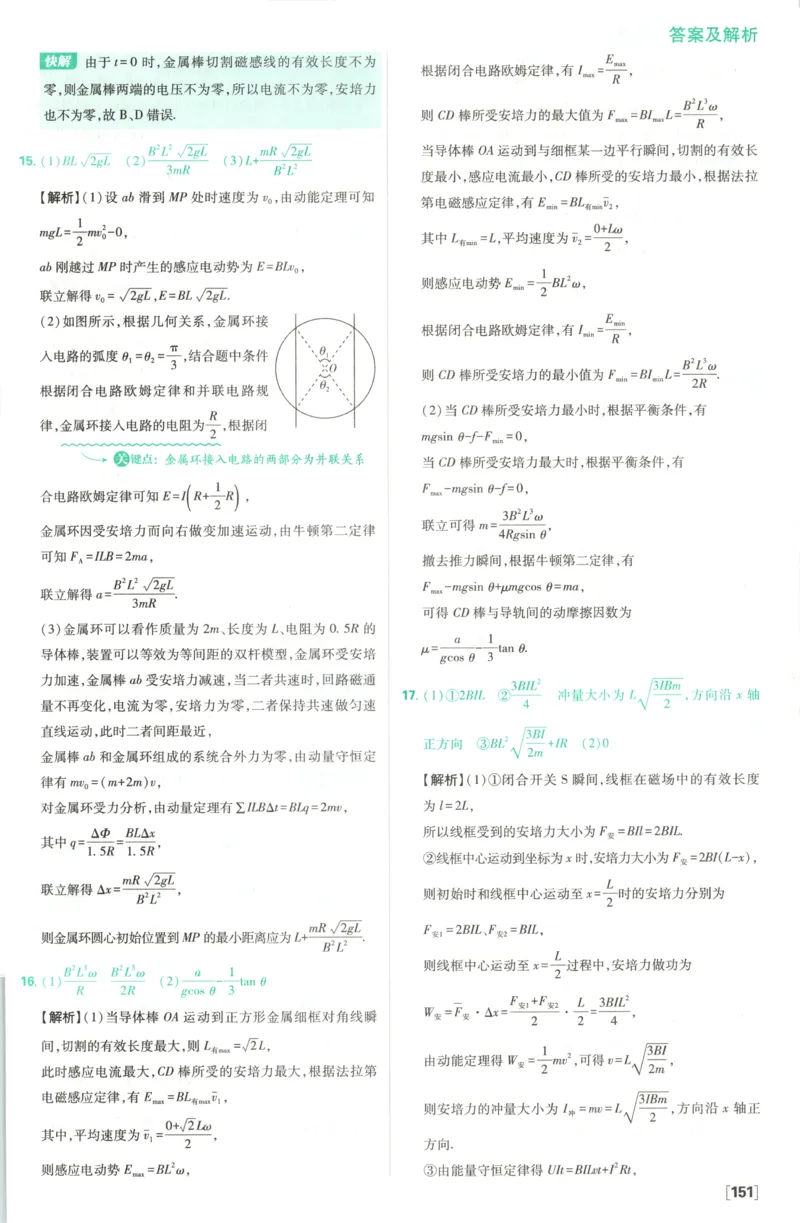 答案及解析
快解 由于 t=0 时,金属棒切割磁感线的有效长度不为
零,则金属棒两端的电压不为零,所以电流不为零,安培力
也不为零,故 B、D 错误.
15. (1)BL√(2gL) (2) B²L²√(2gL)/(3mR) (3)L+ mR√(2gL)/(B²L²)
【解析】(1)设 ab 滑到 MP 处时速度为 v₀,由动能定理可知
mgL= 1/2 mv₀²-0,
ab 刚越过 MP 时产生的感应电动势为 E=BLv₀,
联立解得 v₀=√(2gL),E=BL√(2gL).
(2)如图所示,根据几何关系,金属环接
入电路的弧度 θ₁=θ₂= π/3,结合题中条件
根据闭合电路欧姆定律和并联电路规
律,金属环接入电路的电阻为 R/2,根据闭
θ₁
O
θ₂
关键点: 金属环接入电路的两部分为并联关系
合电路欧姆定律可知 E=I(R+ 1/2 R),
金属环因受安培力而向右做变加速运动,由牛顿第二定律
可知 F_A=ILB=2ma,
联立解得 a= B²L²√(2gL)/(3mR).
(3)金属环可以看作质量为 2m、长度为 L、电阻为 0.5R 的
导体棒,装置可以等效为等间距的双杆模型,金属环受安培
力加速,金属棒 ab 受安培力减速,当二者共速时,回路磁通
量不再变化,电流为零,安培力为零,二者保持共速做匀速
直线运动,此时二者间距最近,
金属棒 ab 和金属环组成的系统合外力为零,由动量守恒定
律有 mv₀=(m+2m)v,
对金属环受力分析,由动量定理有 ΣILBΔt=BLq=2mv,
其中 q= ΔΦ/(1.5R) = BLΔx/(1.5R),
联立解得 Δx= mR√(2gL)/(B²L²),
则金属环圆心初始位置到 MP 的最小距离应为 L+ mR√(2gL)/(B²L²).
16. (1) B²L³ω/R B²L³ω/(2R) (2) a/(gcos θ) - 1/3 tan θ
【解析】(1)当导体棒 OA 运动到正方形金属细框对角线瞬
间,切割的有效长度最大,则 L有max=√2L,
此时感应电流最大,CD 棒所受的安培力最大,根据法拉第
电磁感应定律,有 Emax=BL有max v̄₁,
其中,平均速度为 v̄₁= (0+√2Lω)/2,
则感应电动势 Emax=BL²ω,
根据闭合电路欧姆定律,有 Imax= Emax/R,
则 CD 棒所受安培力的最大值为 Fmax=BImaxL= B²L³ω/R,
当导体棒 OA 运动到与细框某一边平行瞬间,切割的有效长
度最小,感应电流最小,CD 棒所受的安培力最小,根据法拉
第电磁感应定律,有 Emin=BL有min v̄₂,
其中 L有min=L,平均速度为 v̄₂= (0+Lω)/2,
则感应电动势 Emin= 1/2 BL²ω,
根据闭合电路欧姆定律,有 Imin= Emin/R,
则 CD 棒所受安培力的最小值为 Fmin=BIminL= B²L³ω/(2R).
(2)当 CD 棒所受安培力最小时,根据平衡条件,有
mgsin θ-f-Fmin=0,
当 CD 棒所受安培力最大时,根据平衡条件,有
Fmax-mgsin θ-f=0,
联立可得 m= 3B²L³ω/(4Rgsin θ),
撤去推力瞬间,根据牛顿第二定律,有
Fmax-mgsin θ+μmgcos θ=ma,
可得 CD 棒与导轨间的动摩擦因数为
μ= a/(gcos θ) - 1/3 tan θ.
17. (1)①2BIL ② 3BIL²/4 冲量大小为 L√(3IBm/2),方向沿 x 轴
正方向 ③BL²√(3BI/2m)+IR (2)0
【解析】(1)①闭合开关 S 瞬间,线框在磁场中的有效长度
为 l=2L,
所以线框受到的安培力大小为 F安=BIl=2BIL.
②线框中心运动到坐标为 x 时,安培力大小为 F安=2BI(L-x),
则初始时和线框中心运动至 x= L/2 时的安培力分别为
F安1=2BIL、F安2=BIL,
则线框中心运动至 x= L/2 过程中,安培力做功为
W安=F̄安·Δx= (F安1+F安2)/2 · L/2 = 3BIL²/4,
由动能定理得 W安= 1/2 mv²,可得 v=L√(3BI/2m),
则安培力的冲量大小为 I冲=mv=L√(3IBm/2),方向沿 x 轴正
方向.
③由能量守恒定律得 UIt=BILvt+I²Rt,
[151]